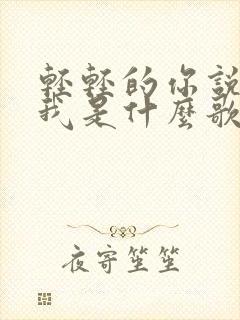 輕輕的你說
我是什麼歌
夜寄笙笙